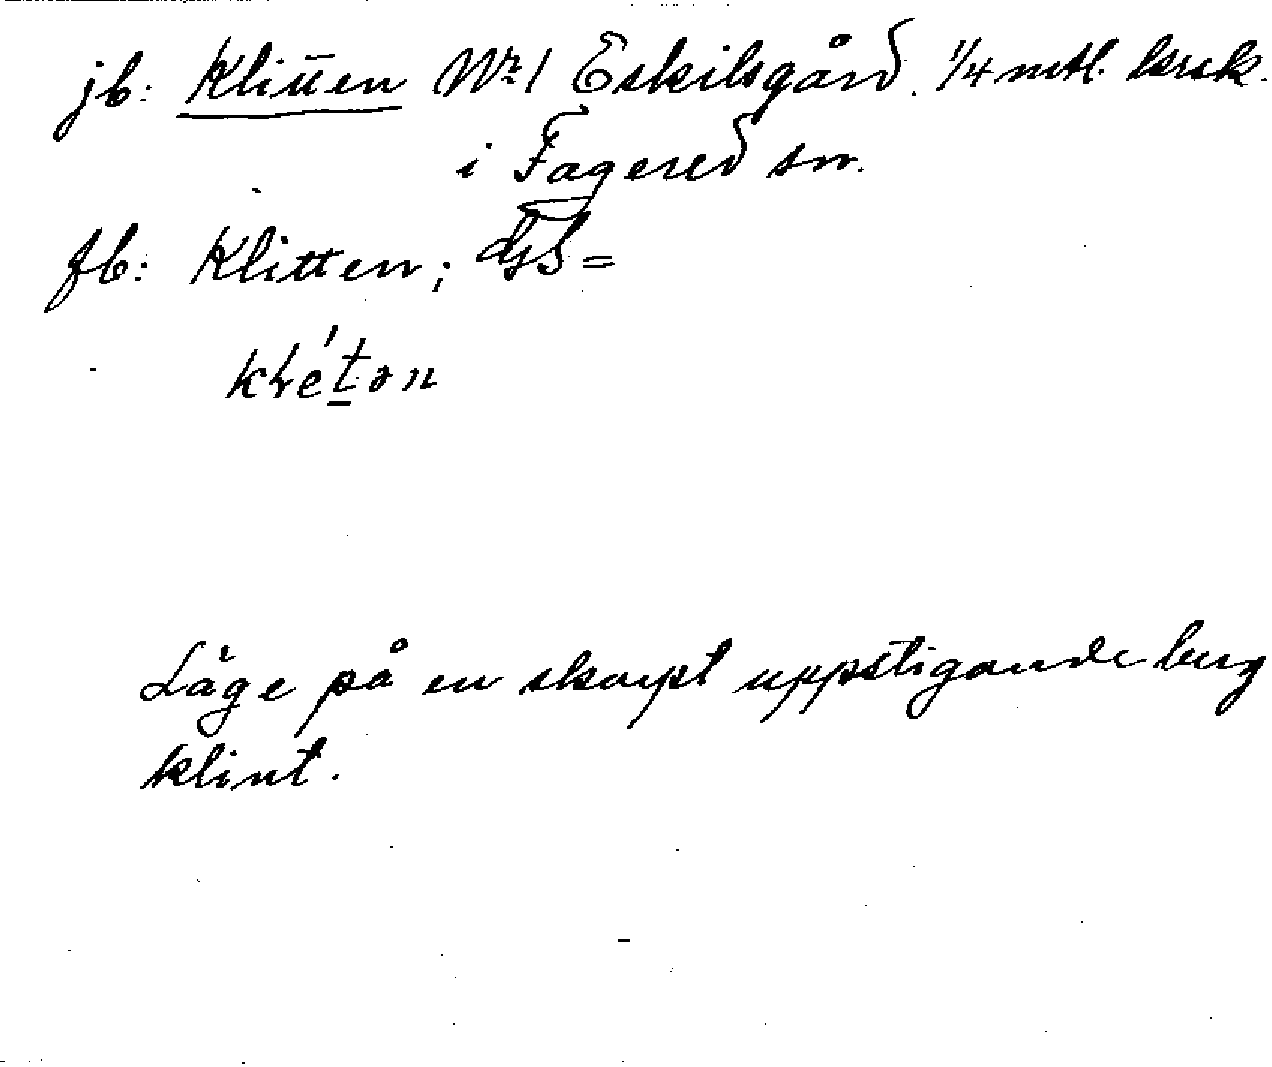 jb: Klitten Nr 1 Eskilsgård. 1/4 mtl. krsk.
i Fagered sn.
fb: Klitten; =
Läge på en skarpt uppstigande berg
klint.